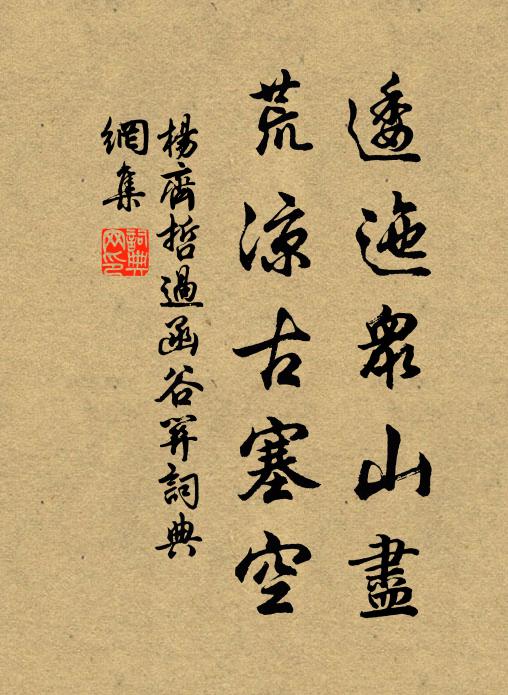 逶迤衆山盡
荒涼古塞空
楊齊哲過函谷関詞典
網集
詞典
网印